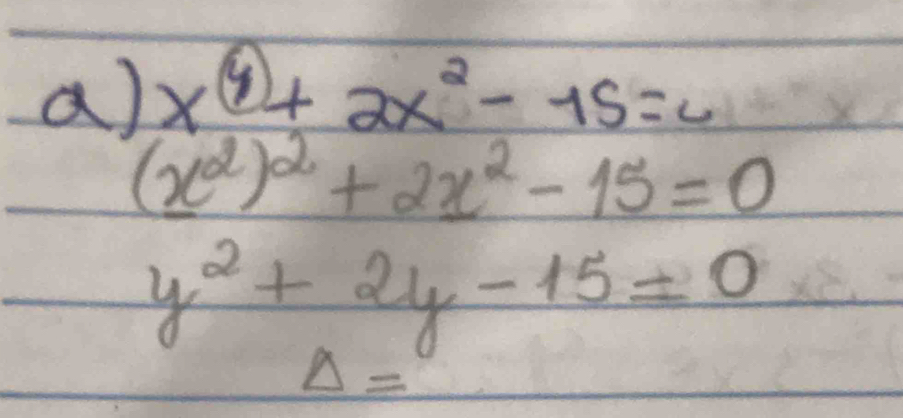 a) x⁴ + 2x² - 15 = 0
(x²)² + 2x² - 15 = 0
y² + 2y - 15 = 0
Δ =